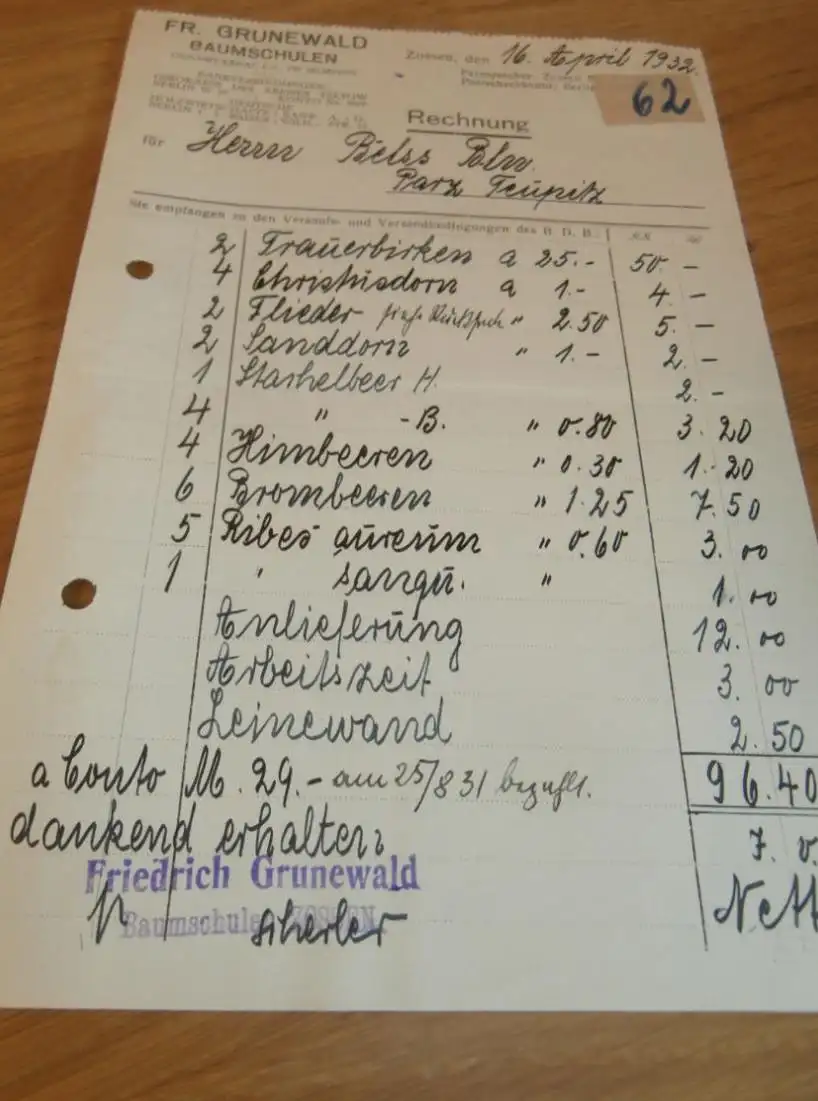 FR. GRUNEWALD
BAUMSCHULEN
Zossen, den 16. April 1932.
62
Rechnung
für Herrn Belss Bln.
Parz Teupitz
Sie empfangen zu den Verkaufs- und Versandbedingungen des B. D. B.:
2 Trauerbirken a 25.- 50 -
4 Christusdorn a 1.- 4. -
2 Flieder " 2.50 5. -
2 Sanddorn " 1.- 2. -
1 Stachelbeer H. 2. -
4 " -B. " 0.80 3.20
4 Himbeeren " 0.30 1.20
6 Brombeeren " 1.25 7.50
5 Ribes aureum " 0.60 3.00
1 " sangu. " 1.00
Anlieferung 12.00
Arbeitszeit 3.00
Leinewand 2.50
a Conto M. 29.- am 25/8 31 bezahlt. 96.40
dankend erhalten 7. v.
Friedrich Grunewald
Baumschulen ZOSSEN
Nett